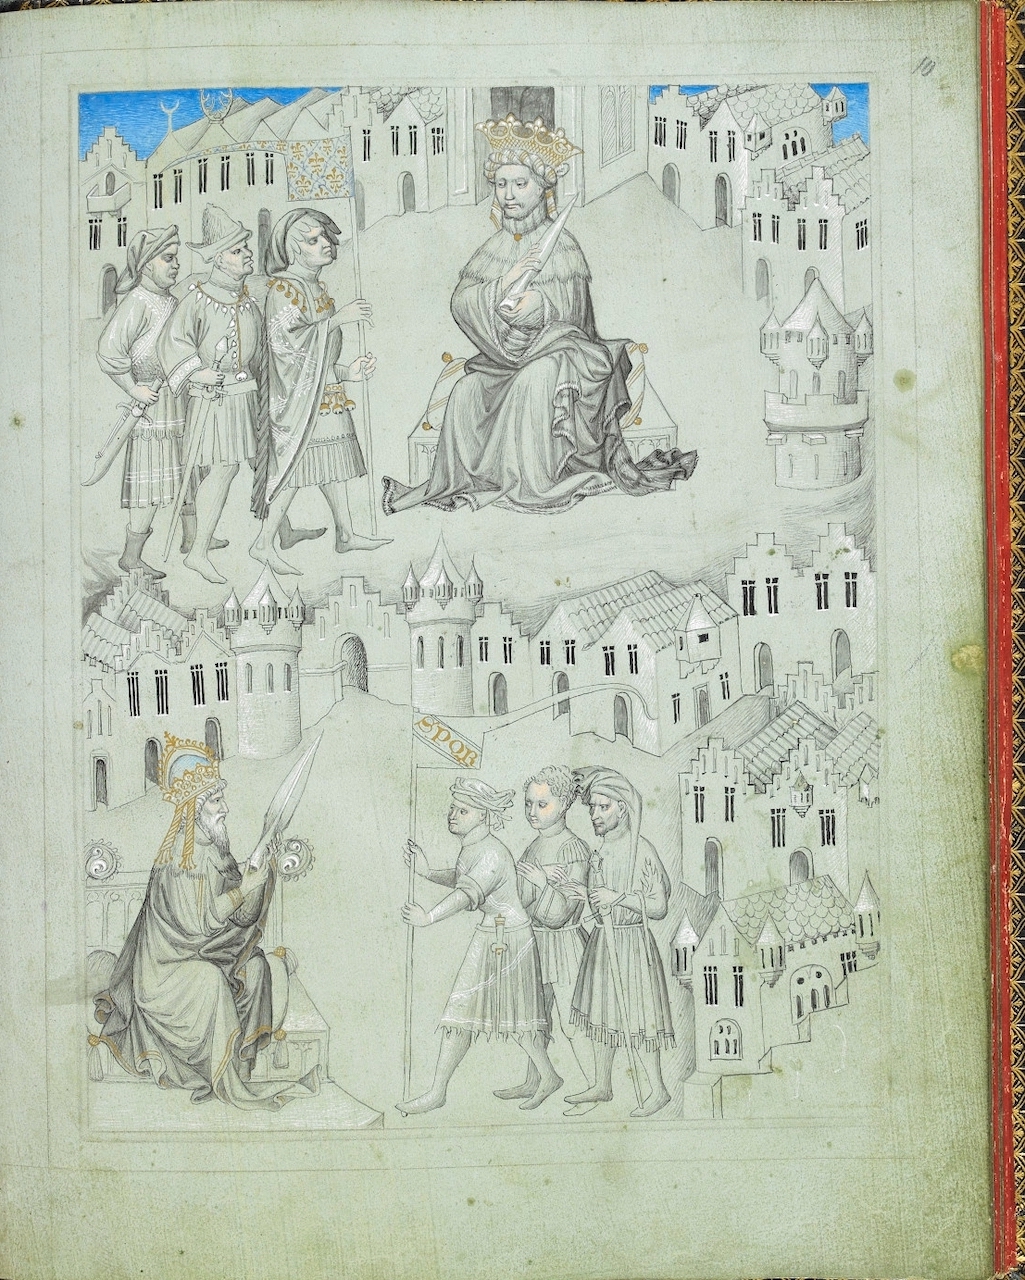 10
SPQR